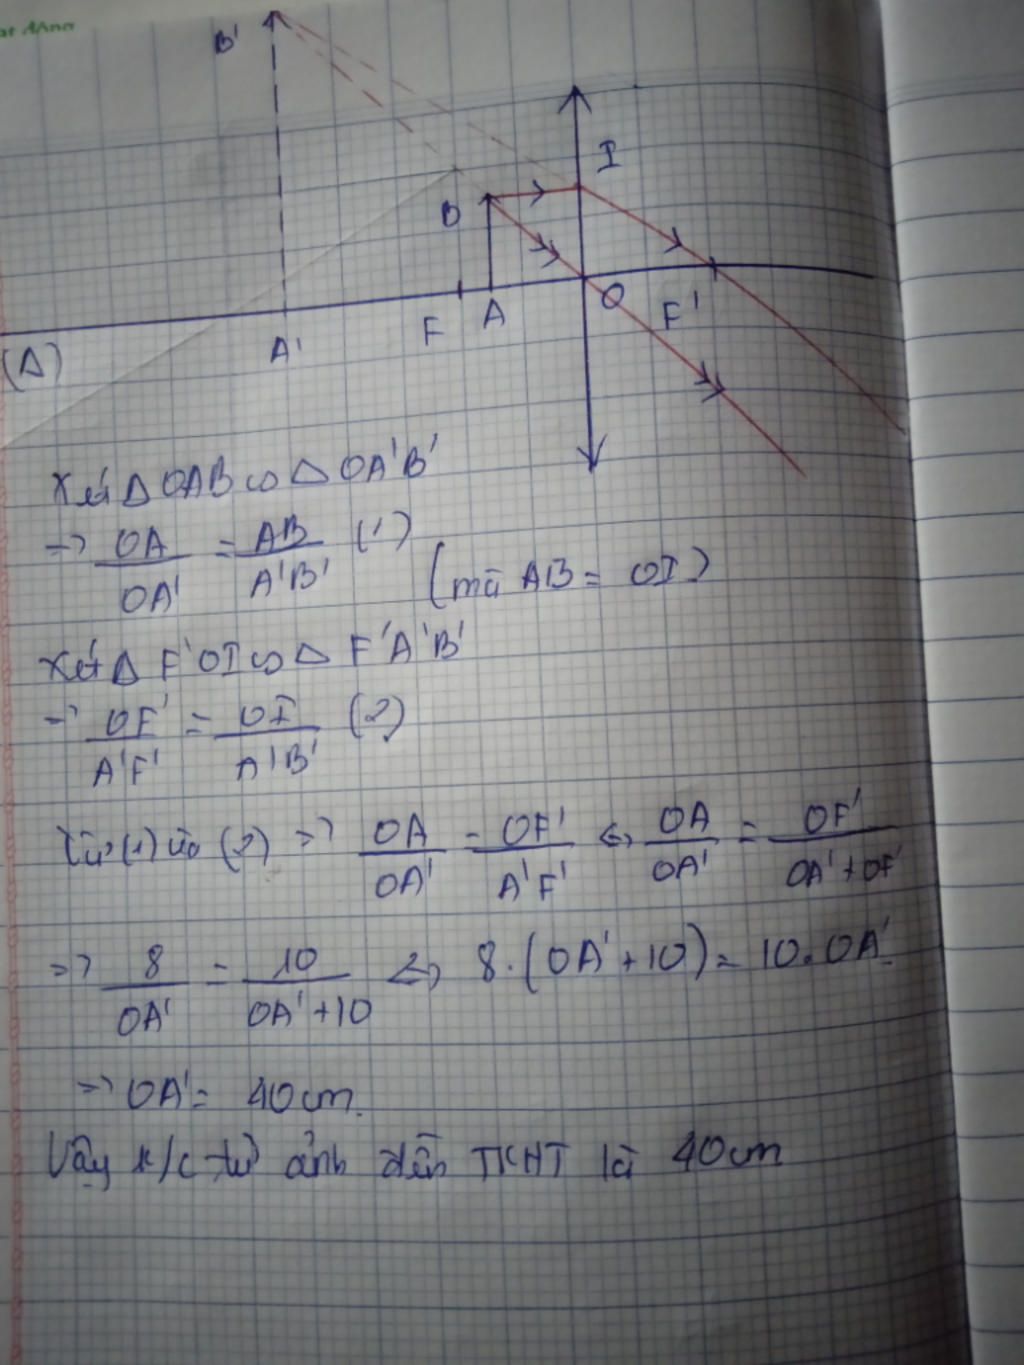 B'
I
B
O
F'
A
F
A'
(Δ)
Xét Δ OAB ∽ Δ OA'B'
=> OA/OA' = AB/A'B' (1)
(mà AB = OI)
Xét Δ F'OI ∽ Δ F'A'B'
=> OF'/A'F' = OI/A'B' (2)
Từ (1) và (2) => OA/OA' = OF'/A'F' <=> OA/OA' = OF'/OA'+OF'
=> 8/OA' = 10/OA'+10 <=> 8.(OA'+10) = 10.OA'
=> OA' = 40cm.
Vậy k/c từ ảnh đến TKHT là 40cm